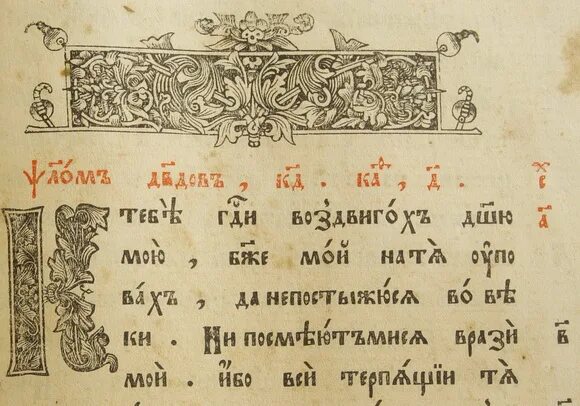 ѱл҃омъ дв҃довъ, кд҃. каѳ҃, д҃.
К тебѣ гд҃и воздвигохъ дш҃ю
мою, бж҃е мой на тѧ оупо
вахъ, да непостыжюсѧ во вѣ
ки. Ни посмѣютъмисѧ врази
мой. ибо вси терпѧщїи тѧ